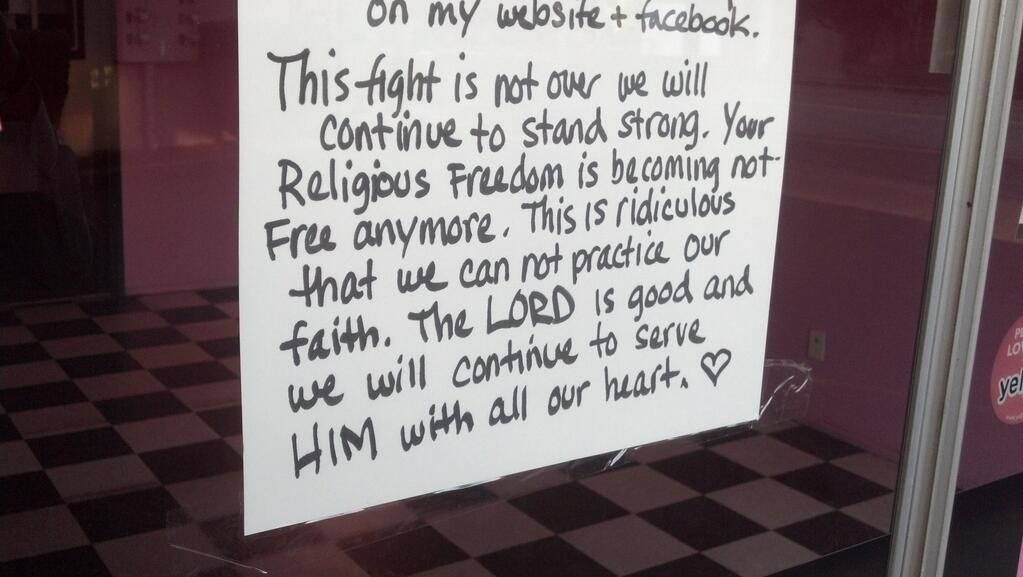 on my website + facebook.
This fight is not over we will
continue to stand strong. Your
Religious Freedom is becoming not
Free anymore. This is ridiculous
that we can not practice our
faith. The LORD is good and
we will continue to serve
HIM with all our heart. ♡